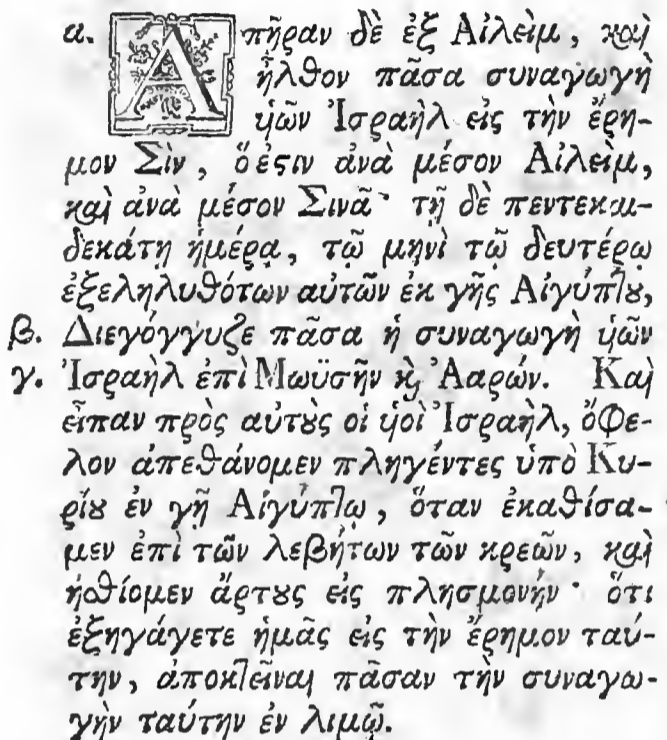 α. Ἀπῆραν δὲ ἐξ Αἰλεὶμ, καὶ
ἦλθον πᾶσα συναγωγὴ
ὑιῶν Ἰσραὴλ εἰς τὴν ἔρη-
μον Σὶν, ὅ ἐστιν ἀνὰ μέσον Αἰλεὶμ,
καὶ ἀνὰ μέσον Σινᾶ· τῇ δὲ πεντεκαι-
δεκάτῃ ἡμέρᾳ, τῷ μηνὶ τῷ δευτέρῳ
ἐξεληλυθότων αὐτῶν ἐκ γῆς Αἰγύπτου,
β. Διεγόγγυζε πᾶσα ἡ συναγωγὴ ὑιῶν
γ. Ἰσραὴλ ἐπὶ Μωϋσῆν ϗ Ἀαρών. Καὶ
εἶπαν πρὸς αὐτοὺς οἱ ὑιοὶ Ἰσραὴλ, ὄφε-
λον ἀπεθάνομεν πληγέντες ὑπὸ Κυ-
ρίου ἐν γῇ Αἰγύπτῳ, ὅταν ἐκαθίσα-
μεν ἐπὶ τῶν λεβήτων τῶν κρεῶν, καὶ
ἠσθίομεν ἄρτους εἰς πλησμονήν· ὅτι
ἐξηγάγετε ἡμᾶς εἰς τὴν ἔρημον ταύ-
την, ἀποκτεῖναι πᾶσαν τὴν συναγω-
γὴν ταύτην ἐν λιμῷ.